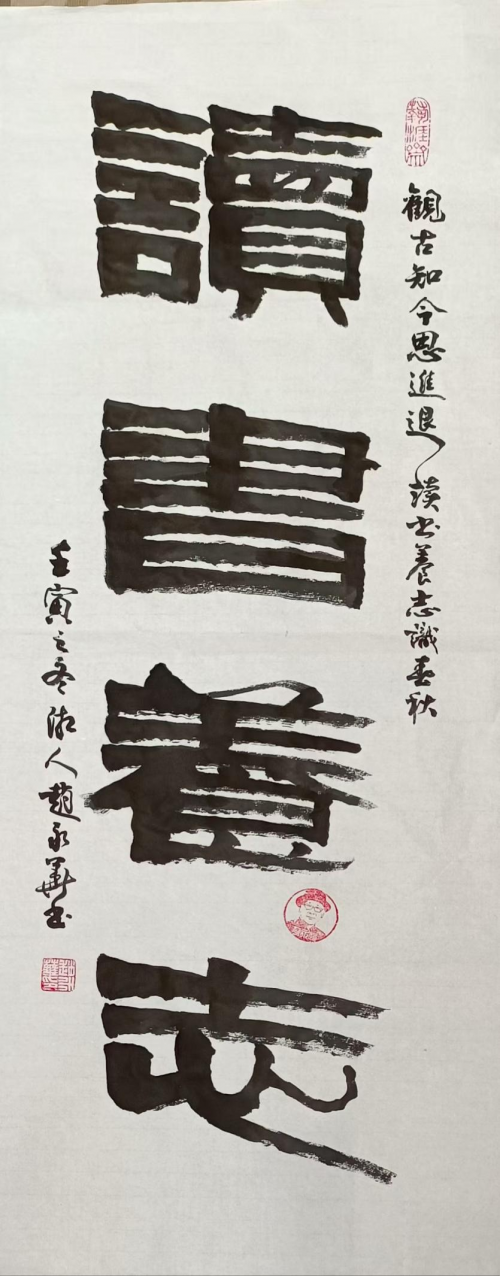 觀古知今思進退讀书養志識春秋
讀書養志
壬寅之冬湘人趙永華书